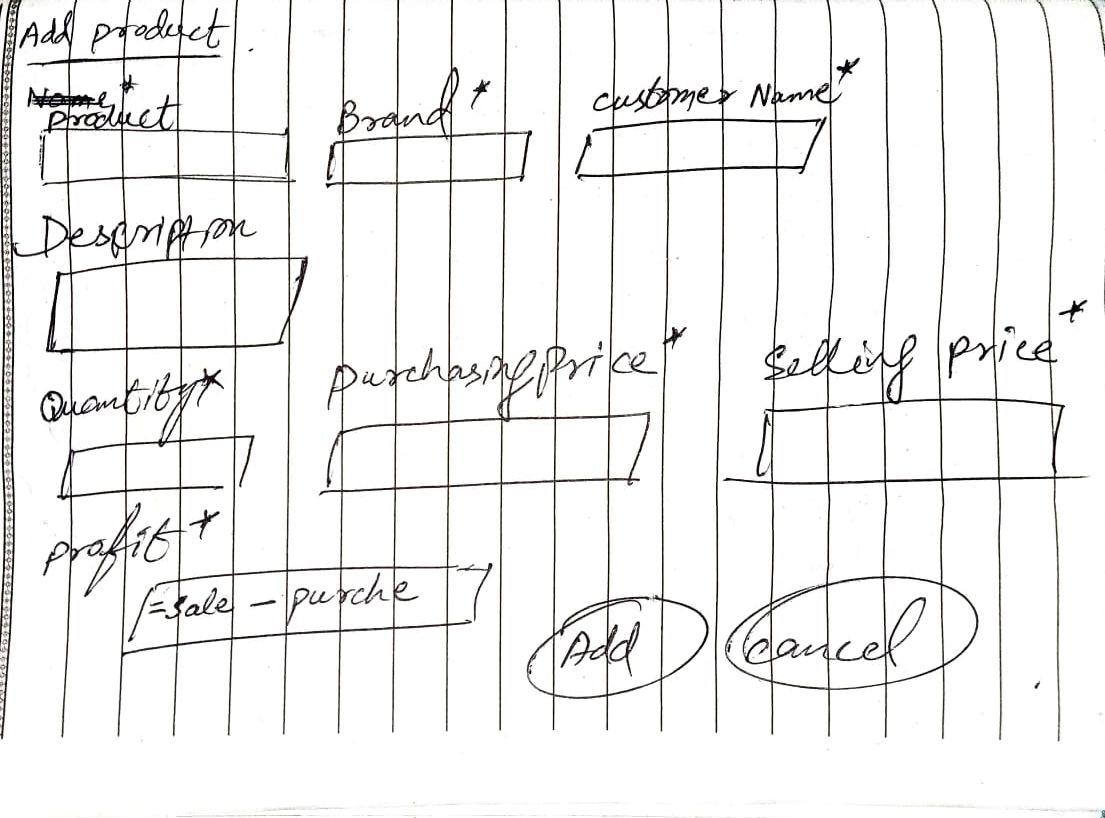 Add product
Name *
product
Brand *
customer Name *
Description
Quantity *
purchasing price *
Selling price *
profit *
=sale - purche
Add
Cancel